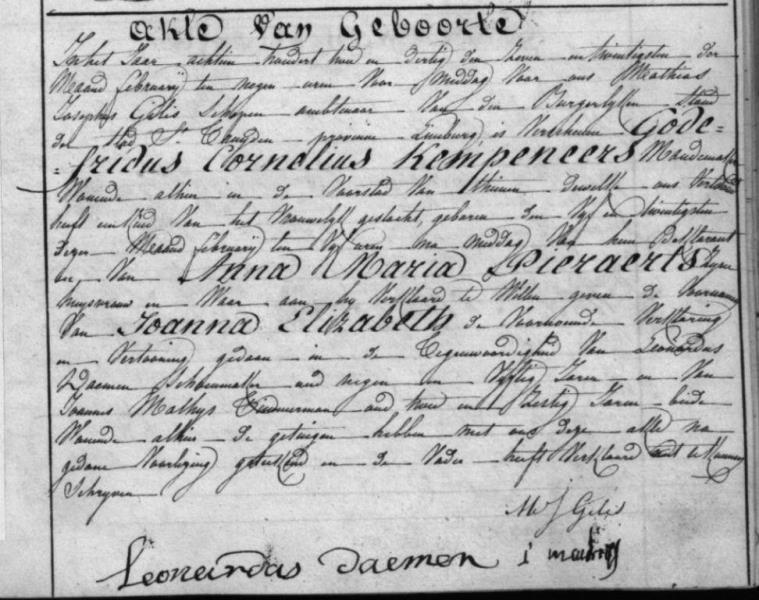 Akte Van Geboorte
In het Jaar achtien hondert twee en dertig den zeven en twintigsten der
Maand february ten negen uren Voor middag Voor ons Mathias
Josephus Gelis Schepen ambtenaar Van den Burgerlyken Stand
der Stad St. Truyden provincie Limburg is Verscheenen Gode=
=fridus Cornelius Kempeneers Mandemaker
Woonende alhier in de Voorstad Van thienen dewelke ons Verklaard
heeft een kind Van het Vrouwelyk geslacht, geboren den Vyf en twintigsten
dezer Maand february ten Vyf uren na middag Van hem Deklarant
en Van Anna Maria Pieraerts zyne
huysvrouw en Waer aan hy Verklaard te Willen geven de Voornaemen
Van Joanna Elizabeth de Voornoemde Verklaring
en Vertooning gedaan in de Tegenwoordigheid Van Leonardus
Daemen Schoenmaker oud negen en Vyftig Jaren en Van
Joannes Mathys Timmerman oud twee en Zestig Jaren beide
Woonende alhier de getuigen hebben met ons deze akte na
gedaane Voorlezing geteekend en de Vader heeft Verklaard niet te kunnen
Schryven
M J Gelis
Leonardas Daemen i mathys